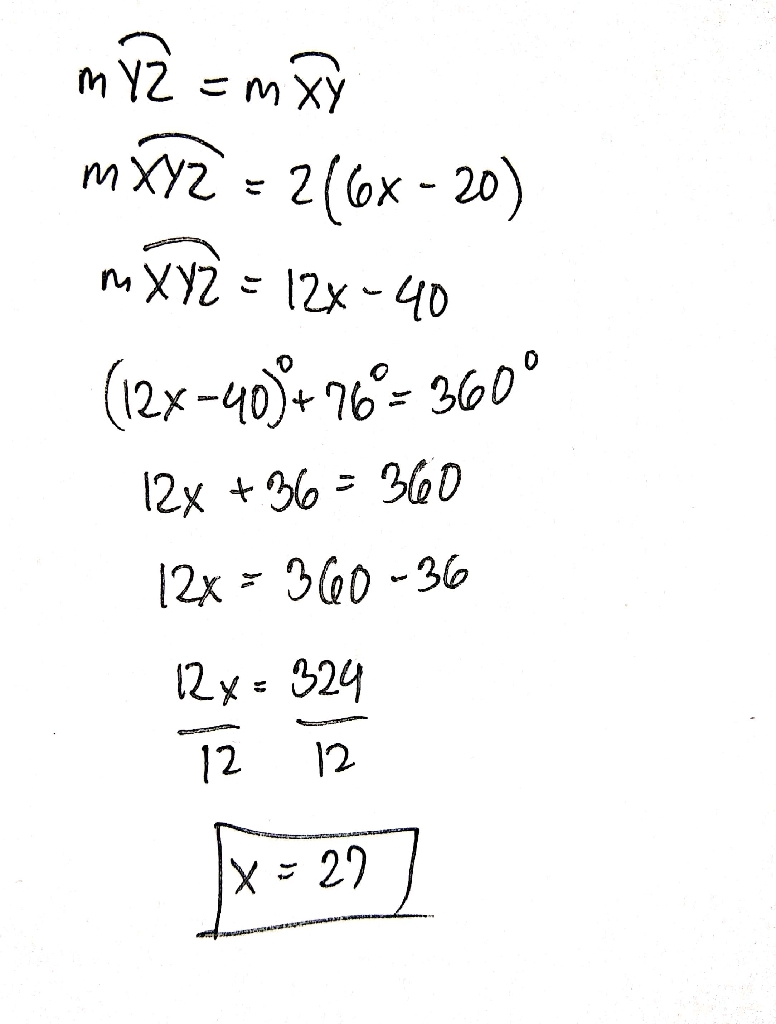 m Y͡Z = m X͡Y
m X͡Y͡Z = 2(6x - 20)
m X͡Y͡Z = 12x - 40
(12x - 40)° + 76° = 360°
12x + 36 = 360
12x = 360 - 36
12x = 324
12 12
x = 27